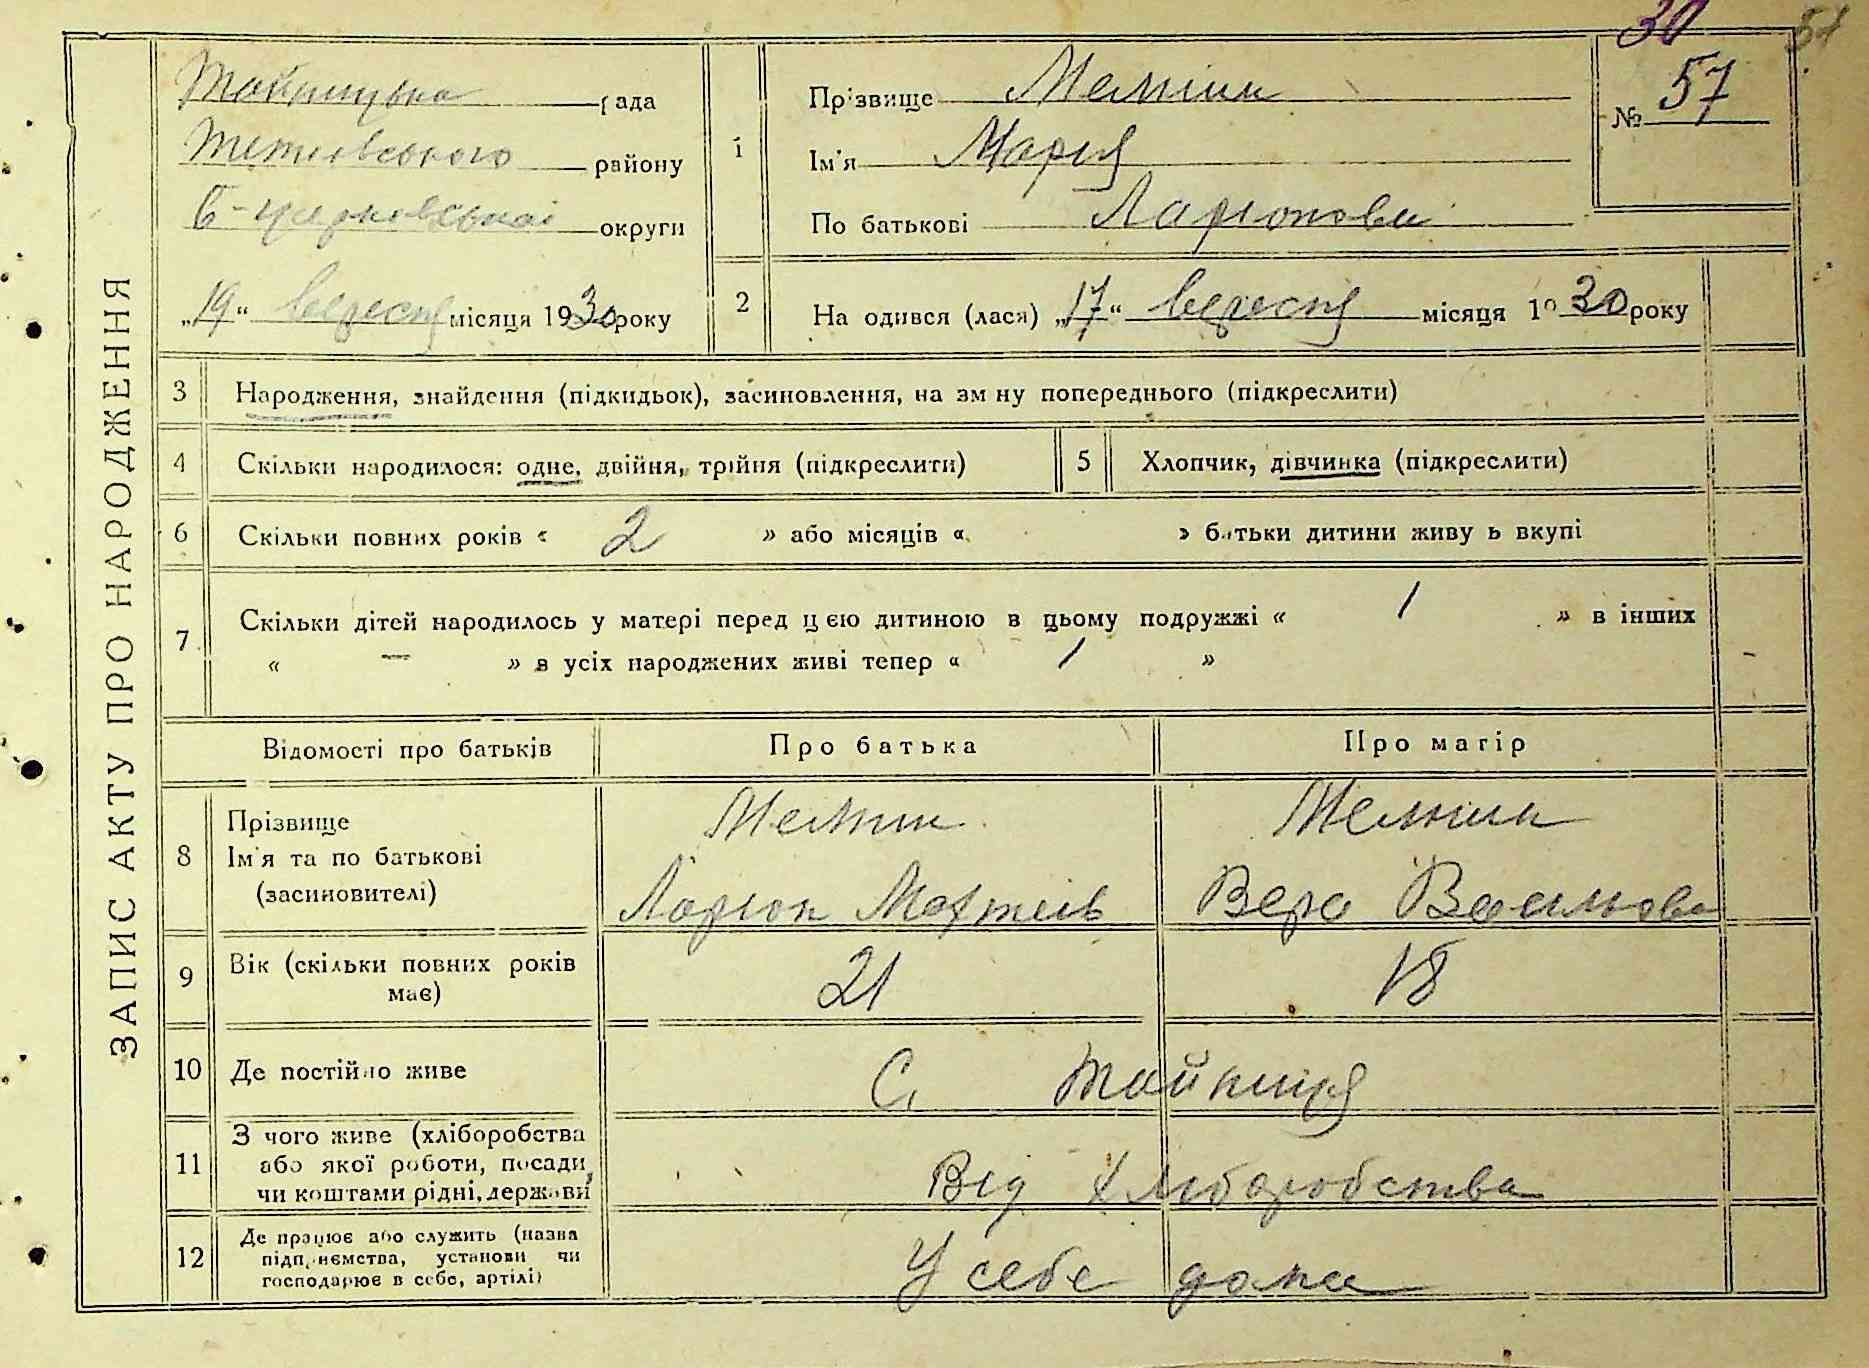 30 51
Тайницька рада
Тетіївського району
Б-церковської округи
„19“ вересня місяця 1930 року
1
Прізвище Мельник
Ім'я Марія
По батькові Ларіонова
№ 57
2
На одився (лася) „17“ вересня місяця 19 30 року
ЗАПИС АКТУ ПРО НАРОДЖЕННЯ
3 Народження, знайдення (підкидьок), засиновлення, на зм ну попереднього (підкреслити)
4 Скільки народилося: одне, двійня, трійня (підкреслити)
5 Хлопчик, дівчинка (підкреслити)
6 Скільки повних років « 2 » або місяців « » батьки дитини живу ь вкупі
7 Скільки дітей народилось у матері перед цією дитиною в цьому подружжі « 1 » в інших
« — » в усіх народжених живі тепер « 1 »
Відомості про батьків Про батька Про матір
8 Прізвище
Ім'я та по батькові
(засиновителі)
Мельник
Ларіон Матвіїв
Мельник
Вера Васильова
9 Вік (скільки повних років
має)
21 18
10 Де постійно живе С. Тайниця
11 З чого живе (хліборобства
або якої роботи, посади,
чи коштами рідні, держави
Від хліборобства
12 Де працює або служить (назва
підприємства, установи чи
господарює в себе, артілі)
У себе дома